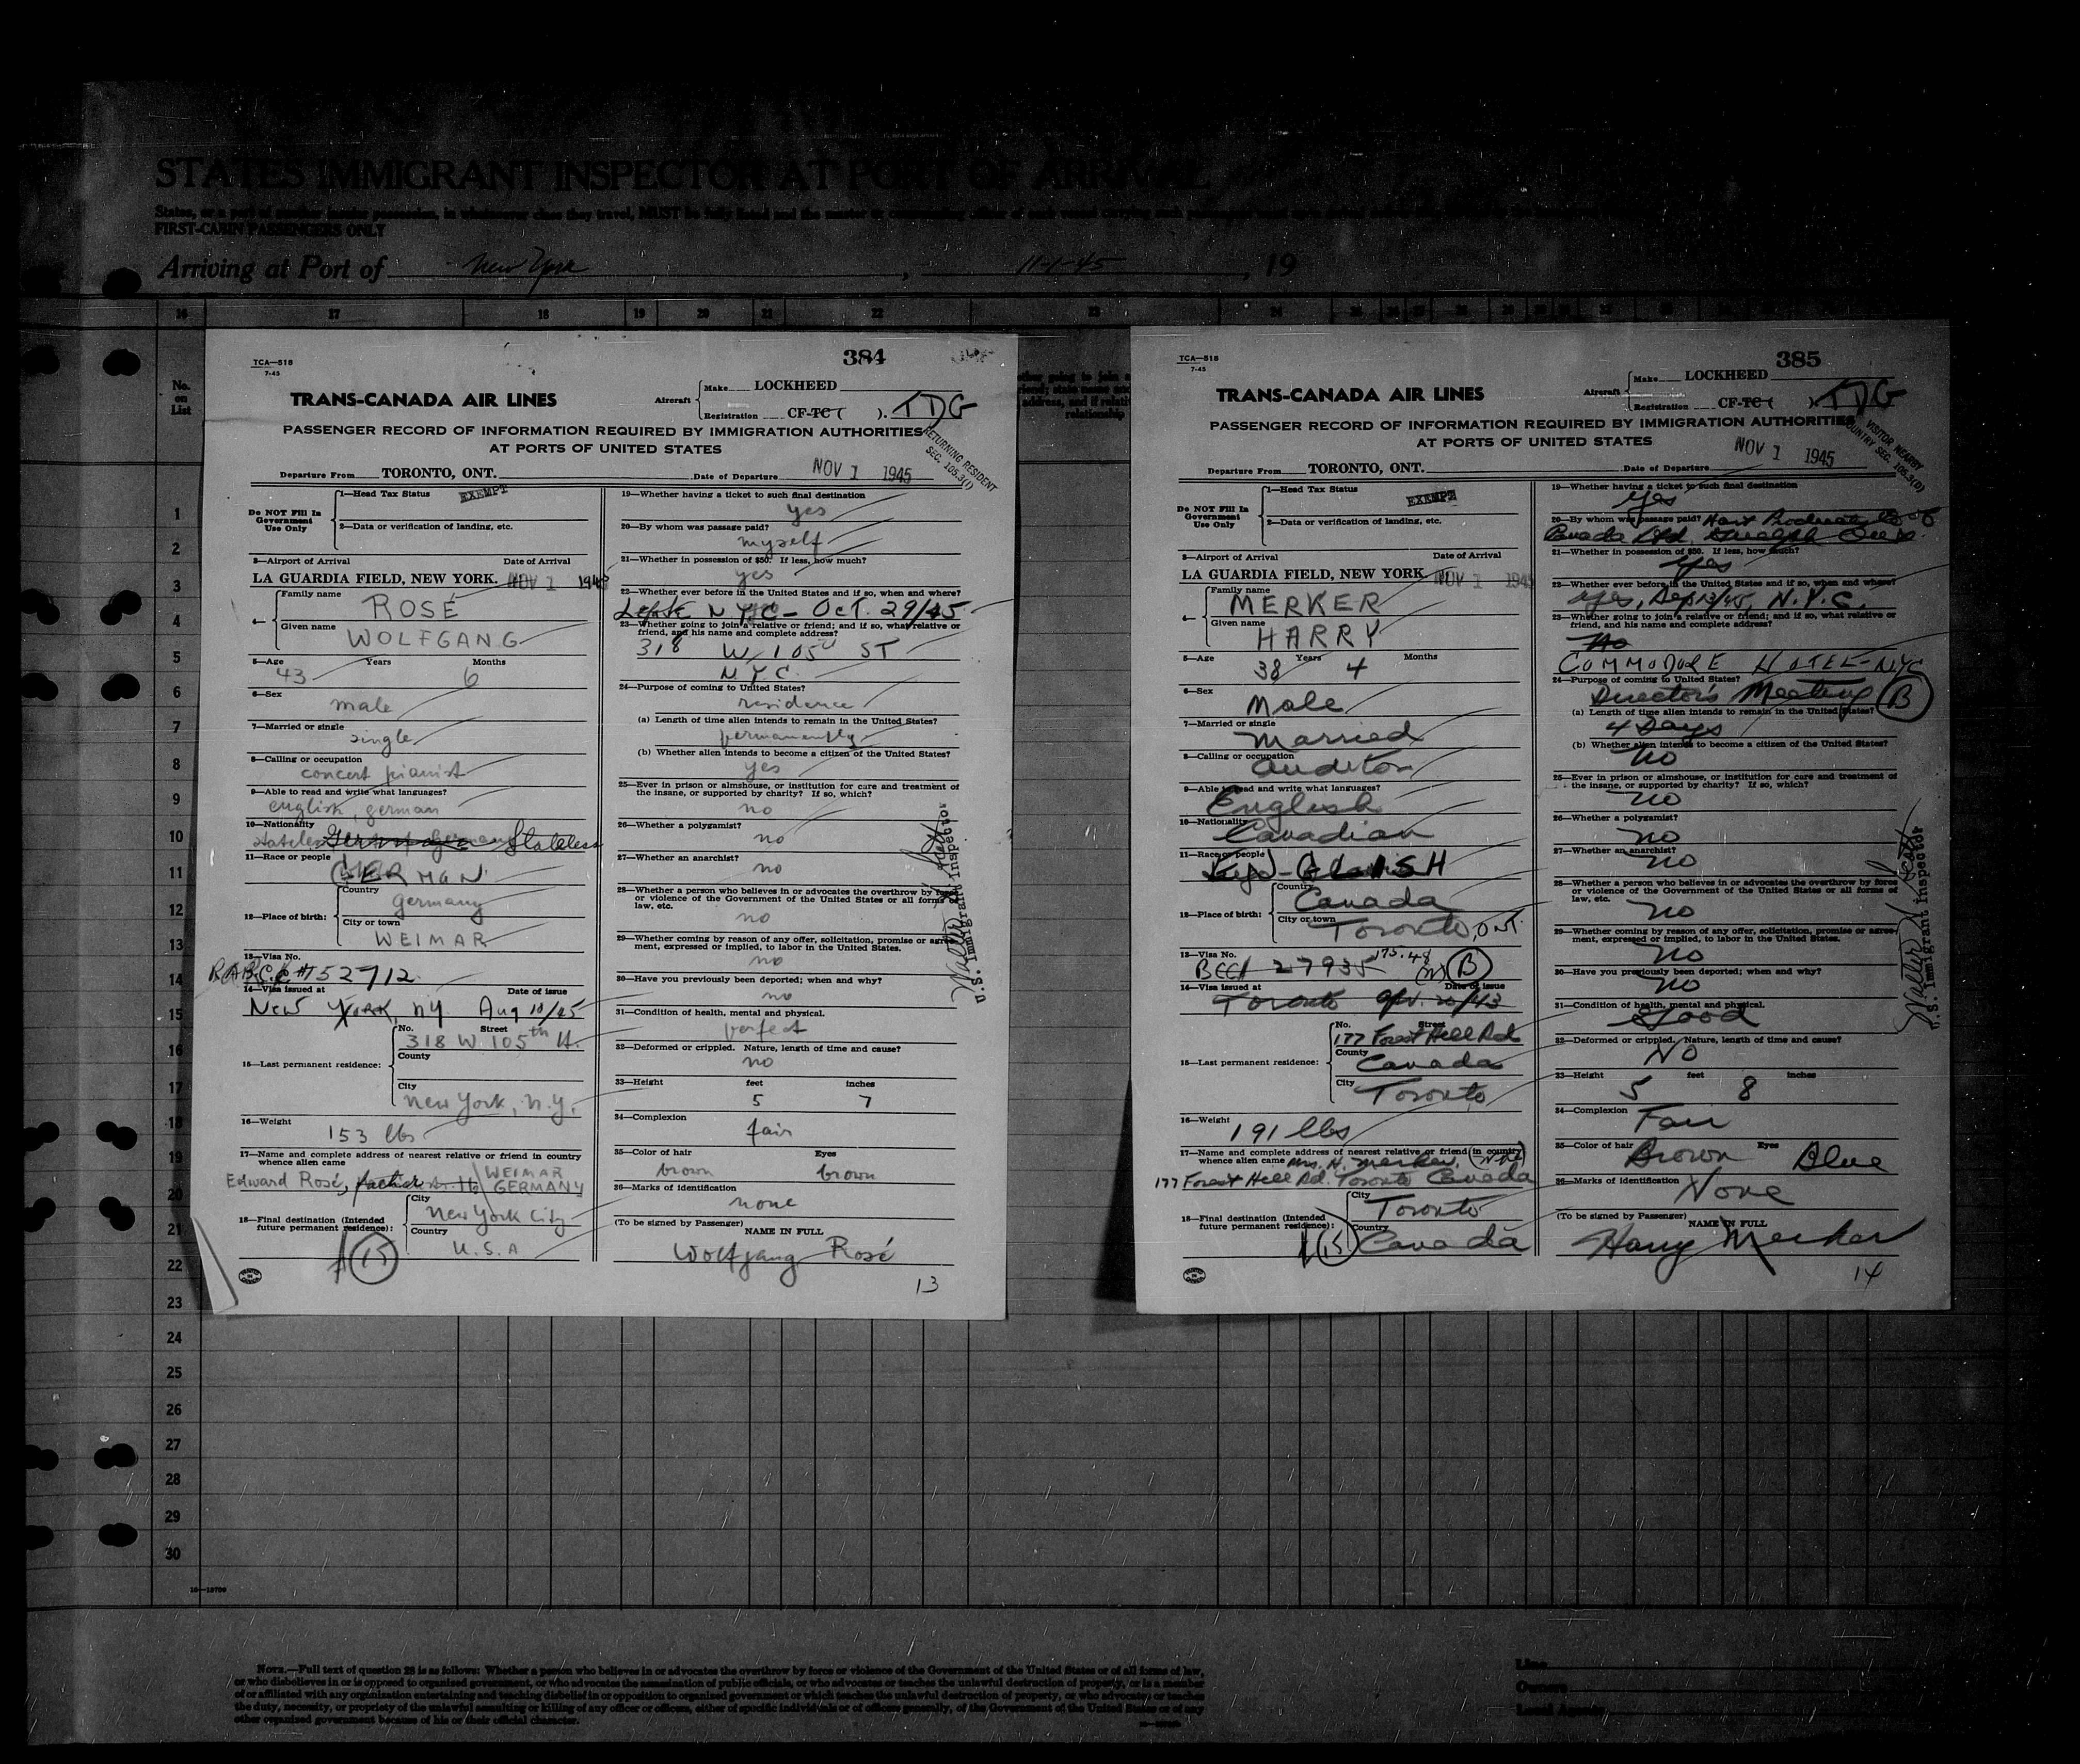 STATES IMMIGRANT INSPECTOR AT PORT OF ARRIVAL
FIRST-CABIN PASSENGERS ONLY
Arriving at Port of New York, 11-1-45, 19
16 17 18 19 20 21 22 23 24
No. on List
1
2
3
4
5
6
7
8
9
10
11
12
13
14
15
16
17
18
19
20
21
22
23
24
25
26
27
28
29
30
TCA—518
7-45
384
TRANS-CANADA AIR LINES
Aircraft
Make LOCKHEED
Registration CF-TC ( ). TDG
PASSENGER RECORD OF INFORMATION REQUIRED BY IMMIGRATION AUTHORITIES
AT PORTS OF UNITED STATES
RETURNING RESIDENT
SEC. 105.3(1)
Departure From TORONTO, ONT. Date of Departure NOV 1 1945
Do NOT Fill In Government Use Only
1—Head Tax Status EXEMPT
2—Data or verification of landing, etc.
3—Airport of Arrival Date of Arrival
LA GUARDIA FIELD, NEW YORK. NOV 1 1945
4—
Family name
ROSÉ
Given name
WOLFGANG
5—Age Years Months
43 6
6—Sex
male
7—Married or single
single
8—Calling or occupation
concert pianist
9—Able to read and write what languages?
english, german
10—Nationality
stateless Stateless
11—Race or people
GERMAN
12—Place of birth:
Country
Germany
City or town
WEIMAR
13—Visa No.
#752712
14—Visa issued at Date of issue
New York, NY Aug 10/45
15—Last permanent residence:
No. Street
318 W. 105th St.
County
City
New York, N.Y.
16—Weight
153 lbs
17—Name and complete address of nearest relative or friend in country
whence alien came
Edward Rosé, WEIMAR
GERMANY
18—Final destination (Intended
future permanent residence):
City
New York City
Country
U.S.A
15
19—Whether having a ticket to such final destination
yes
20—By whom was passage paid?
myself
21—Whether in possession of $50. If less, how much?
yes
22—Whether ever before in the United States and if so, when and where?
Left NYC - Oct. 29/45
23—Whether going to join a relative or friend; and if so, what relative or
friend, and his name and complete address?
318 W 105 ST
NYC
24—Purpose of coming to United States?
residence
(a) Length of time alien intends to remain in the United States?
permanently
(b) Whether alien intends to become a citizen of the United States?
yes
25—Ever in prison or almshouse, or institution for care and treatment of
the insane, or supported by charity? If so, which?
no
26—Whether a polygamist?
no
27—Whether an anarchist?
no
28—Whether a person who believes in or advocates the overthrow by force
or violence of the Government of the United States or all forms of
law, etc.
no
29—Whether coming by reason of any offer, solicitation, promise or agree-
ment, expressed or implied, to labor in the United States.
no
30—Have you previously been deported; when and why?
no
31—Condition of health, mental and physical.
perfect
32—Deformed or crippled. Nature, length of time and cause?
no
33—Height feet inches
5 7
34—Complexion
fair
35—Color of hair Eyes
brown brown
36—Marks of identification
none
(To be signed by Passenger) NAME IN FULL
Wolfgang Rosé
13
U.S. Immigrant Inspector
TCA—518
7-45
385
TRANS-CANADA AIR LINES
Aircraft
Make LOCKHEED
Registration CF-TC ( ). TDG
PASSENGER RECORD OF INFORMATION REQUIRED BY IMMIGRATION AUTHORITIES
AT PORTS OF UNITED STATES
VISITOR NEARBY
COUNTRY SEC. 105.3(D)
Departure From TORONTO, ONT. Date of Departure NOV 1 1945
Do NOT Fill In Government Use Only
1—Head Tax Status EXEMPT
2—Data or verification of landing, etc.
3—Airport of Arrival Date of Arrival
LA GUARDIA FIELD, NEW YORK NOV 1 1945
4—
Family name
MERKER
Given name
HARRY
5—Age Years Months
38 4
6—Sex
Male
7—Married or single
Married
8—Calling or occupation
Auditor
9—Able to read and write what languages?
English
10—Nationality
Canadian
11—Race or people
12—Place of birth:
Country
Canada
City or town
Toronto, ONT.
13—Visa No.
BCC 27935 175.48 B
14—Visa issued at Date of issue
Toronto
15—Last permanent residence:
No. Street
177 Forest Hill Rd
County
Canada
City
Toronto
16—Weight
191 lbs
17—Name and complete address of nearest relative or friend in country
whence alien came Mrs. H. Merker,
177 Forest Hill Rd. Toronto Canada
18—Final destination (Intended
future permanent residence):
City
Toronto
Country
Canada
15
19—Whether having a ticket to such final destination
Yes
20—By whom was passage paid?
Canada Ltd. Guelph Ont.
21—Whether in possession of $50. If less, how much?
Yes
22—Whether ever before in the United States and if so, when and where?
Yes, N.Y.C.
23—Whether going to join a relative or friend; and if so, what relative or
friend, and his name and complete address?
No
COMMODORE HOTEL-NYC
24—Purpose of coming to United States?
Director's Meeting B
(a) Length of time alien intends to remain in the United States?
4 Days
(b) Whether alien intends to become a citizen of the United States?
No
25—Ever in prison or almshouse, or institution for care and treatment of
the insane, or supported by charity? If so, which?
no
26—Whether a polygamist?
no
27—Whether an anarchist?
no
28—Whether a person who believes in or advocates the overthrow by force
or violence of the Government of the United States or all forms of
law, etc.
no
29—Whether coming by reason of any offer, solicitation, promise or agree-
ment, expressed or implied, to labor in the United States.
no
30—Have you previously been deported; when and why?
no
31—Condition of health, mental and physical.
Good
32—Deformed or crippled. Nature, length of time and cause?
No
33—Height feet inches
5 8
34—Complexion
Fair
35—Color of hair Eyes
Brown Blue
36—Marks of identification
None
(To be signed by Passenger) NAME IN FULL
Harry Merker
14
U.S. Immigrant Inspector
NOTE.—Full text of question 28 is as follows: Whether a person who believes in or advocates the overthrow by force or violence of the Government of the United States or of all forms of law,
or who disbelieves in or is opposed to organized government, or who advocates the assassination of public officials, or who advocates or teaches the unlawful destruction of property, or is a member
of or affiliated with any organization entertaining and teaching disbelief in or opposition to organized government or which teaches the unlawful destruction of property, or who advocates or teaches
the duty, necessity, or propriety of the unlawful assaulting or killing of any officer or officers, either of specific individuals or of officers generally, of the Government of the United States or of any
other organized government because of his or their official character.
Line
Owners
Local Agents